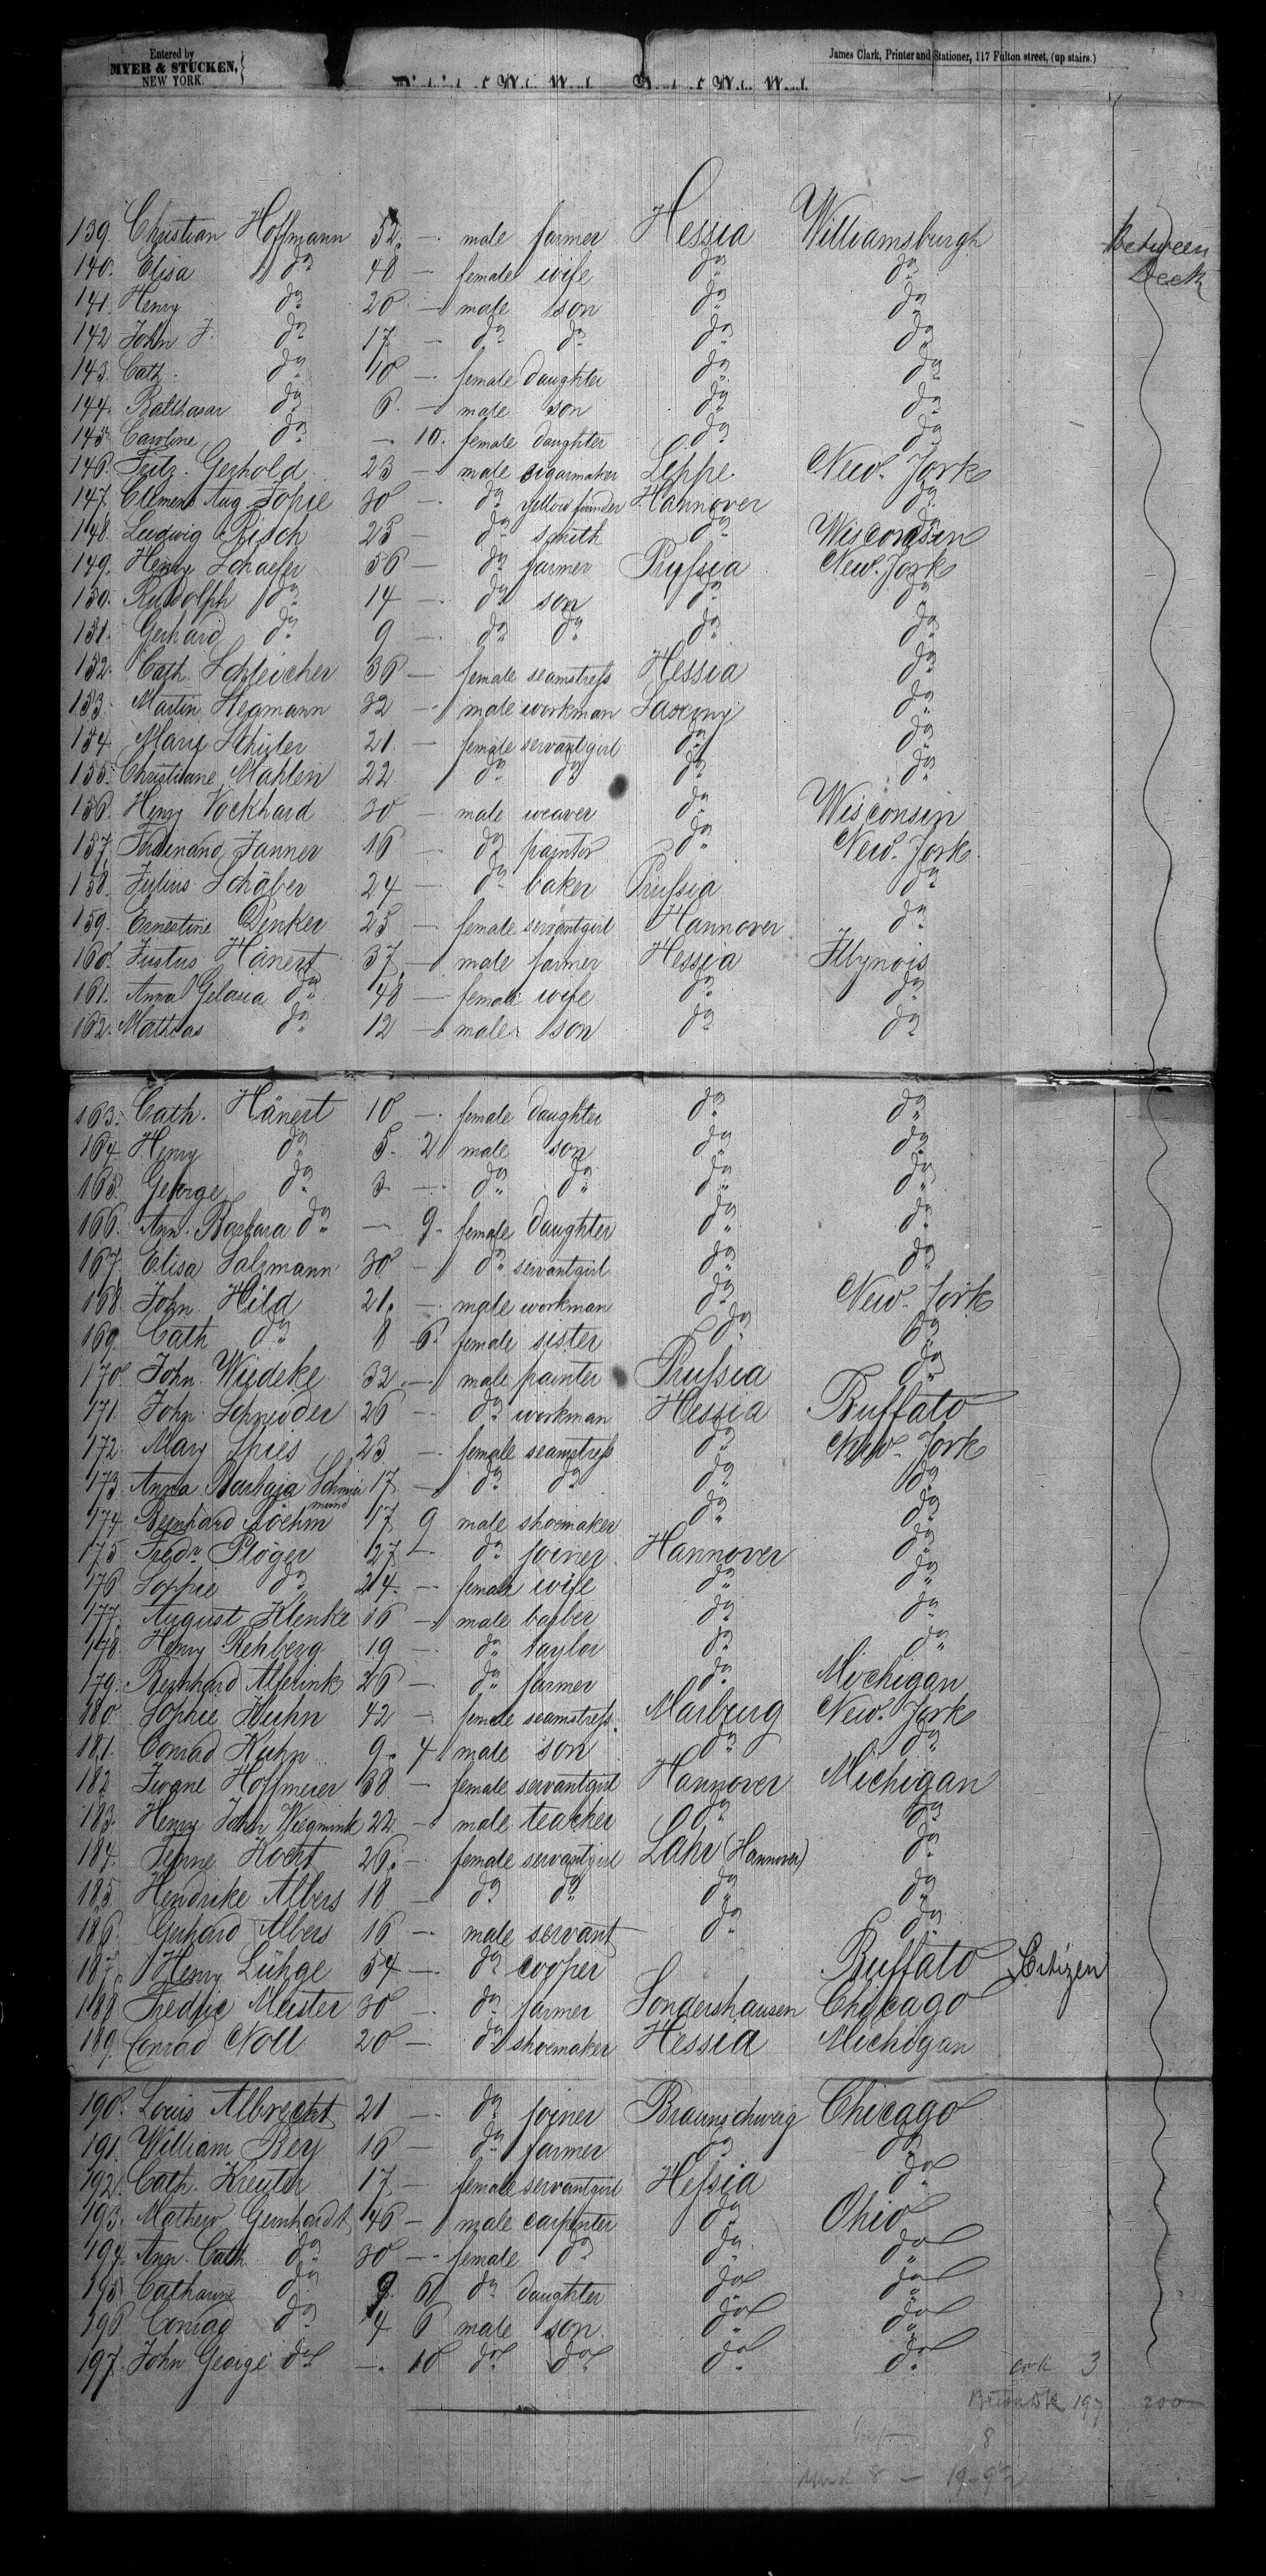 Entered by
MYER & STUCKEN,
NEW YORK.
James Clark, Printer and Stationer, 117 Fulton street, (up stairs.)
139. Christian Hoffmann 52. — male farmer Hessia Williamsburgh Between
140. Elisa do 48 — female wife do do Deck
141. Henry do 20 — male son do do
142 John J. do 17 — do do do do
143. Cath. do 10 — female daughter do do
144. Balthasar do 6. — male son do do
145 Caroline do — 10. female daughter do do
146. Fritz Gerhold 23 — male cigarmaker Lippe New-York
147. Clemens Aug Topie 30 — do yellow founder Hannover do
148. Ludwig Risch 25 — do smith do Wisconsin
149. Henry Schaefer 56 — do farmer Prussia New-York
150. Rudolph do 14 — do son do do
151. Gerhard do 9 — do do do do
152. Cath. Schleicher 36 — female seamstress Hessia do
153. Martin Hegmann 32 — male workman Saxony do
154 Marie Schyler 21. — female servantgirl do do
155. Christiane Mahlein 22 do do do do
156. Henry Vockhard 30 — male weaver do Wisconsin
157. Ferdinand Janner 16 — do painter do New-York
158. Julius Schäber 24 — do baker Prussia do
159. Ernestine Denker 25 — female servantgirl Hannover do
160. Justus Hänert 37. — male farmer Hessia Illynois
161. Anna Gelasia do 48 — female wife do do
162. Mathias do 12 — male son do do
163. Cath. Hänert 10 — female daughter do do
164. Henry do 5. 2 male son do do
165. George do 3 — do do do do
166. Ann. Barbara do — 9. female daughter do do
167. Elisa Salzmann 30 — do servantgirl do do
168. John Hild 21. — male workman do New-York
169. Cath do 8 6. female sister do do
170 John Wiedeke 32. — male painter Prussia do
171. John Schneider 26 — do workman Hessia Buffalo
172 Mary Spies 23 — female seamstress do New-York
173 Anna Barbara 17 — do do do do
174. Bernhard Böehm 17 9 male shoemaker do do
175 Fredr Plöger 27 — do joiner Hannover do
176 Sophie do 24. — female wife do do
177. August Klenke 16 — male barber do do
178 Henry Rehberg 19 — do taylor do do
179. Bernhard Alferink 26 — do farmer do Michigan
180 Sophie Kuhn 42 — female seamstress. Marburg New-York
181. Conrad Kuhn 9. 4 male son do do
182 Hoffmeier 38 — female servantgirl Hannover Michigan
183. Henry John Wiegmink 22 — male teacher do do
184. Kocht 26. — female servantgirl Lahr (Hannover) do
185. Hendrike Albers 18 — do do do do
186. Gerhard Albers 16 — male servant do do
187. Henry Lühge 54 — do cooper Buffalo Citizen
188 Fredric Meister 30 — do farmer Sondershausen Chicago
189. Conrad Noll 20 — do shoemaker Hessia Michigan
190. Louis Albrecht 21 — do joiner Braunschweig Chicago
191. William Rey 16 — do farmer do do
192. Cath. Kreuter 17 — female servantgirl Hessia do
193. Mathew Gernhardt 46 — male carpenter do Ohio
194. Ann. Cath do 30 — female do do do
195 Catharine do 9. 6 do daughter do do
196 Conrad do 4 6 male son do do
197. John George do — 10 do do do do
3
197 200
8